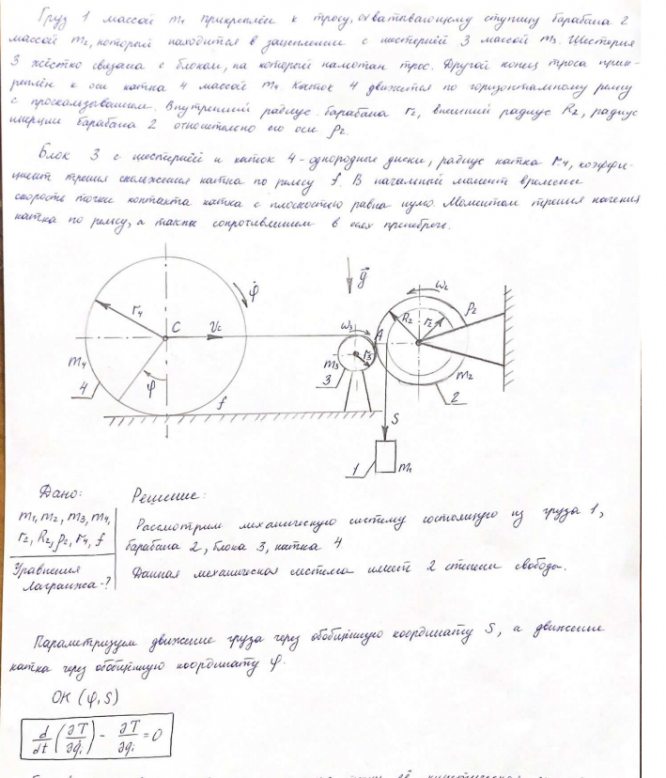 Груз 1 массой m₁ прикреплён к тросу, охватывающему ступицу барабана 2
массой m₂, который находится в зацеплении с шестернёй 3 массой m₃. Шестерня
3 жёстко связана с блоком, на который намотан трос. Другой конец троса прик-
реплён к оси катка 4 массой m₄. Каток 4 движется по горизонтальному рельсу
с проскальзыванием. Внутренний радиус барабана r₂, внешний радиус R₂, радиус
инерции барабана 2 относительно его оси ρ₂.
Блок 3 с шестернёй и каток 4 - однородные диски, радиус катка r₄, коэффи-
циент трения скольжения катка по рельсу f. В начальный момент времени
скорость точки контакта катка с плоскостью равна нулю. Моментом трения качения
катка по рельсу, а также сопротивлением в осях пренебречь.
r₄
C
V_C
φ̇
φ
m₄
4
f
g⃗
ω₃
A
r₃
m₃
3
ω₂
R₂
r₂
ρ₂
m₂
2
S
1
m₁
Дано:
Решение:
m₁, m₂, m₃, m₄,
r₂, R₂, ρ₂, r₄, f
Уравнения
Лагранжа - ?
Рассмотрим механическую систему состоящую из груза 1,
барабана 2, блока 3, катка 4
Данная механическая система имеет 2 степени свободы.
Параметризуем движение груза через обобщённую координату S, а движение
катка через обобщённую координату φ.
ОК (φ, S)
d/dt (∂T/∂q̇ᵢ) - ∂T/∂qᵢ = 0